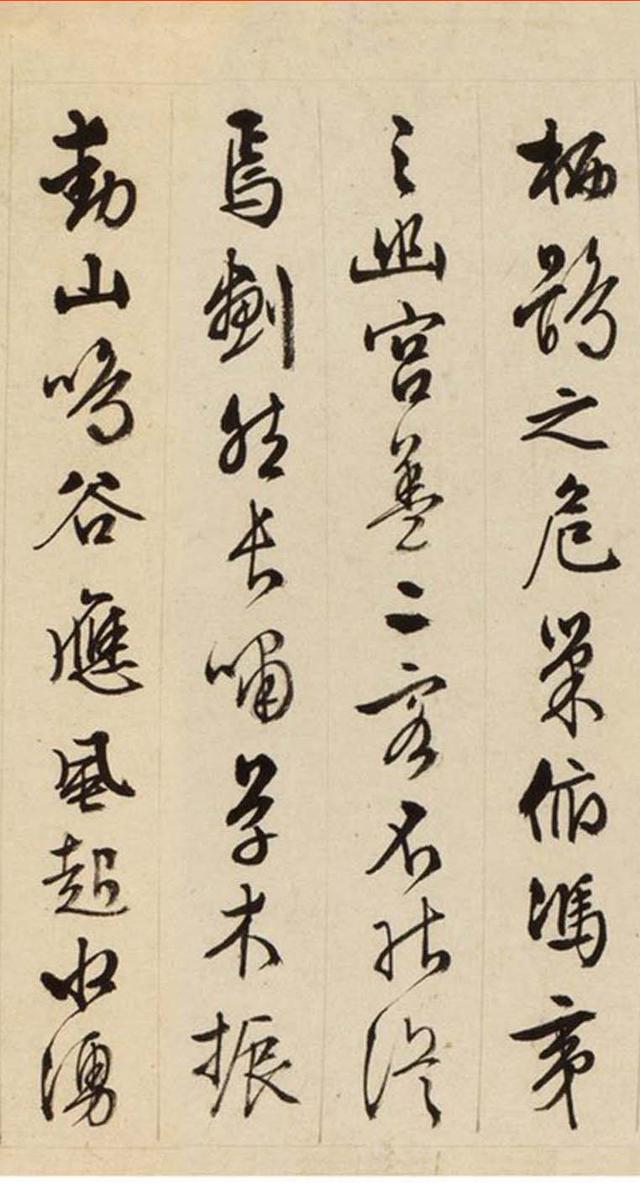 栖鹘之危巢俯馮夷
之幽宫盖二客不能從
焉劃然長嘯草木振
動山鳴谷應風起水湧